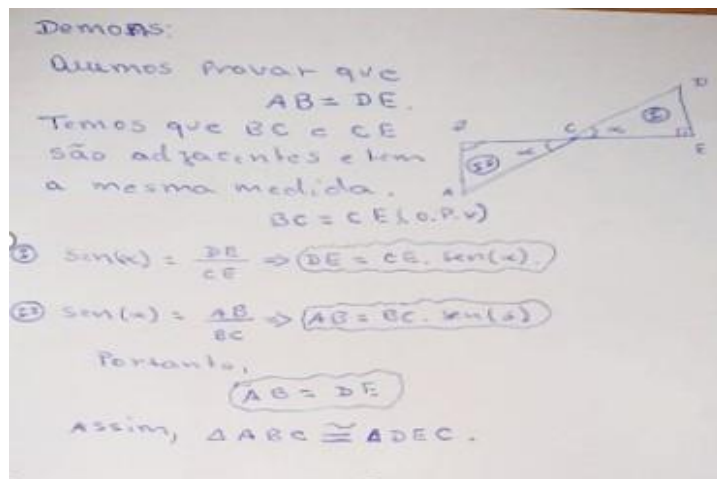 Demons:
Queremos Provar que
AB = DE.
Temos que BC e CE
são adjacentes e tem
a mesma medida.
BC = CE (O.P.V)
D
C α I
B E
α II
A
I Sen(α) = DE/CE ⇒ DE = CE . sen(α).
II Sen(α) = AB/BC ⇒ AB = BC . sen(α)
Portanto,
AB = DE
Assim, ΔABC ≅ ΔDEC.